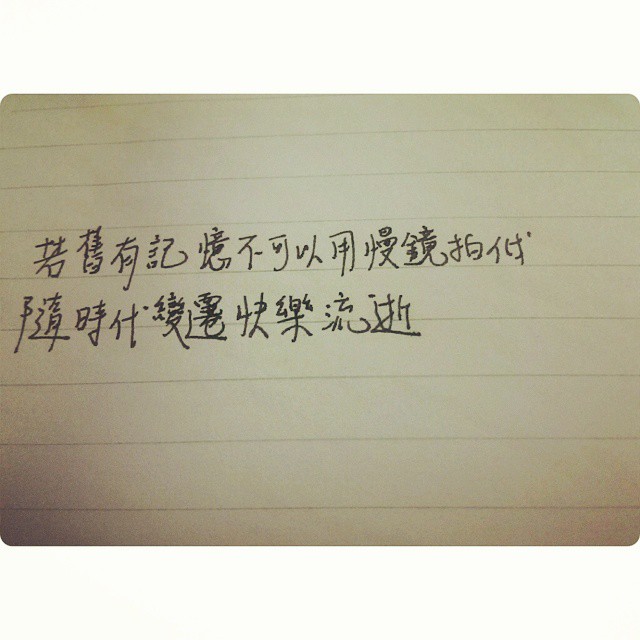 若舊有記憶不可以用慢鏡拍低
隨時代變遷快樂流逝